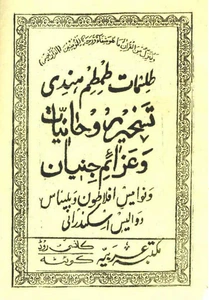 طلسمات طمطم ہندی
تسخیر روحانیات
وعزائم جنیان
ونوامیس افلاطون وبلیناس
دوالیس اسکندرانی
مکتبہ عربیہ
کانسی روڈ
کوئٹہ